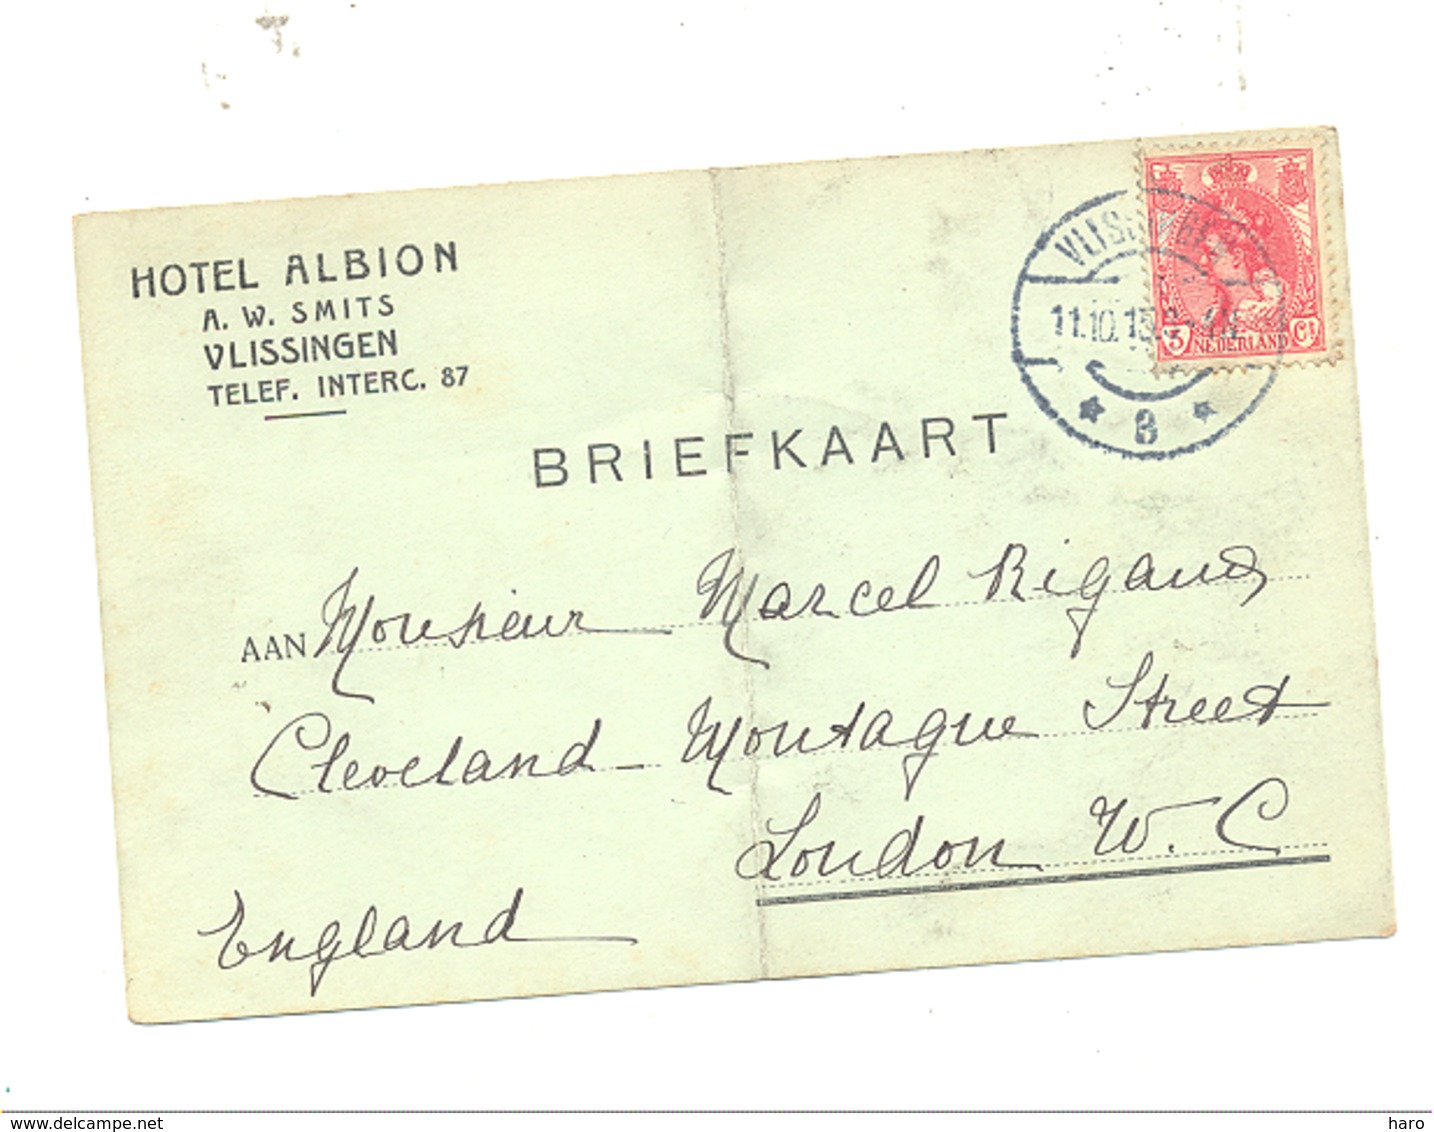 HOTEL ALBION
A. W. SMITS
VLISSINGEN
TELEF. INTERC. 87
BRIEFKAART
VLISSINGEN
11.10.15
B
5 Ct
NEDERLAND
AAN Monsieur Marcel Rigaud
Cleveland - Montague Street
London W. C
England
delcampe.net
haro